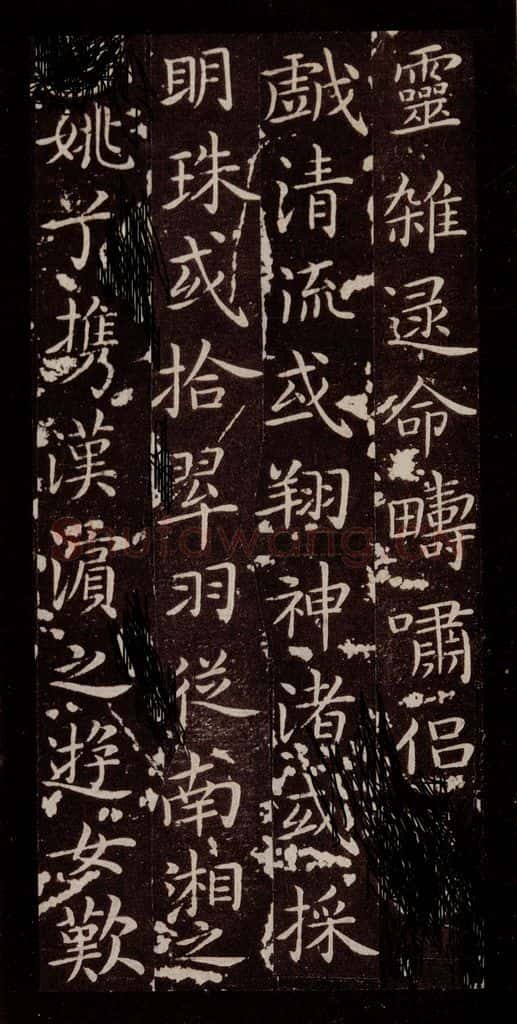 靈雜遝命疇嘯侶
戲清流或翔神渚或採
明珠或拾翠羽從南湘之
姚兮携漢濱之遊女歎
Shufawang.cn